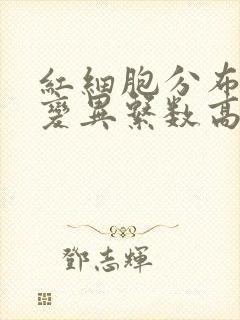 紅細胞分布
變異繫数高
鄧志輝